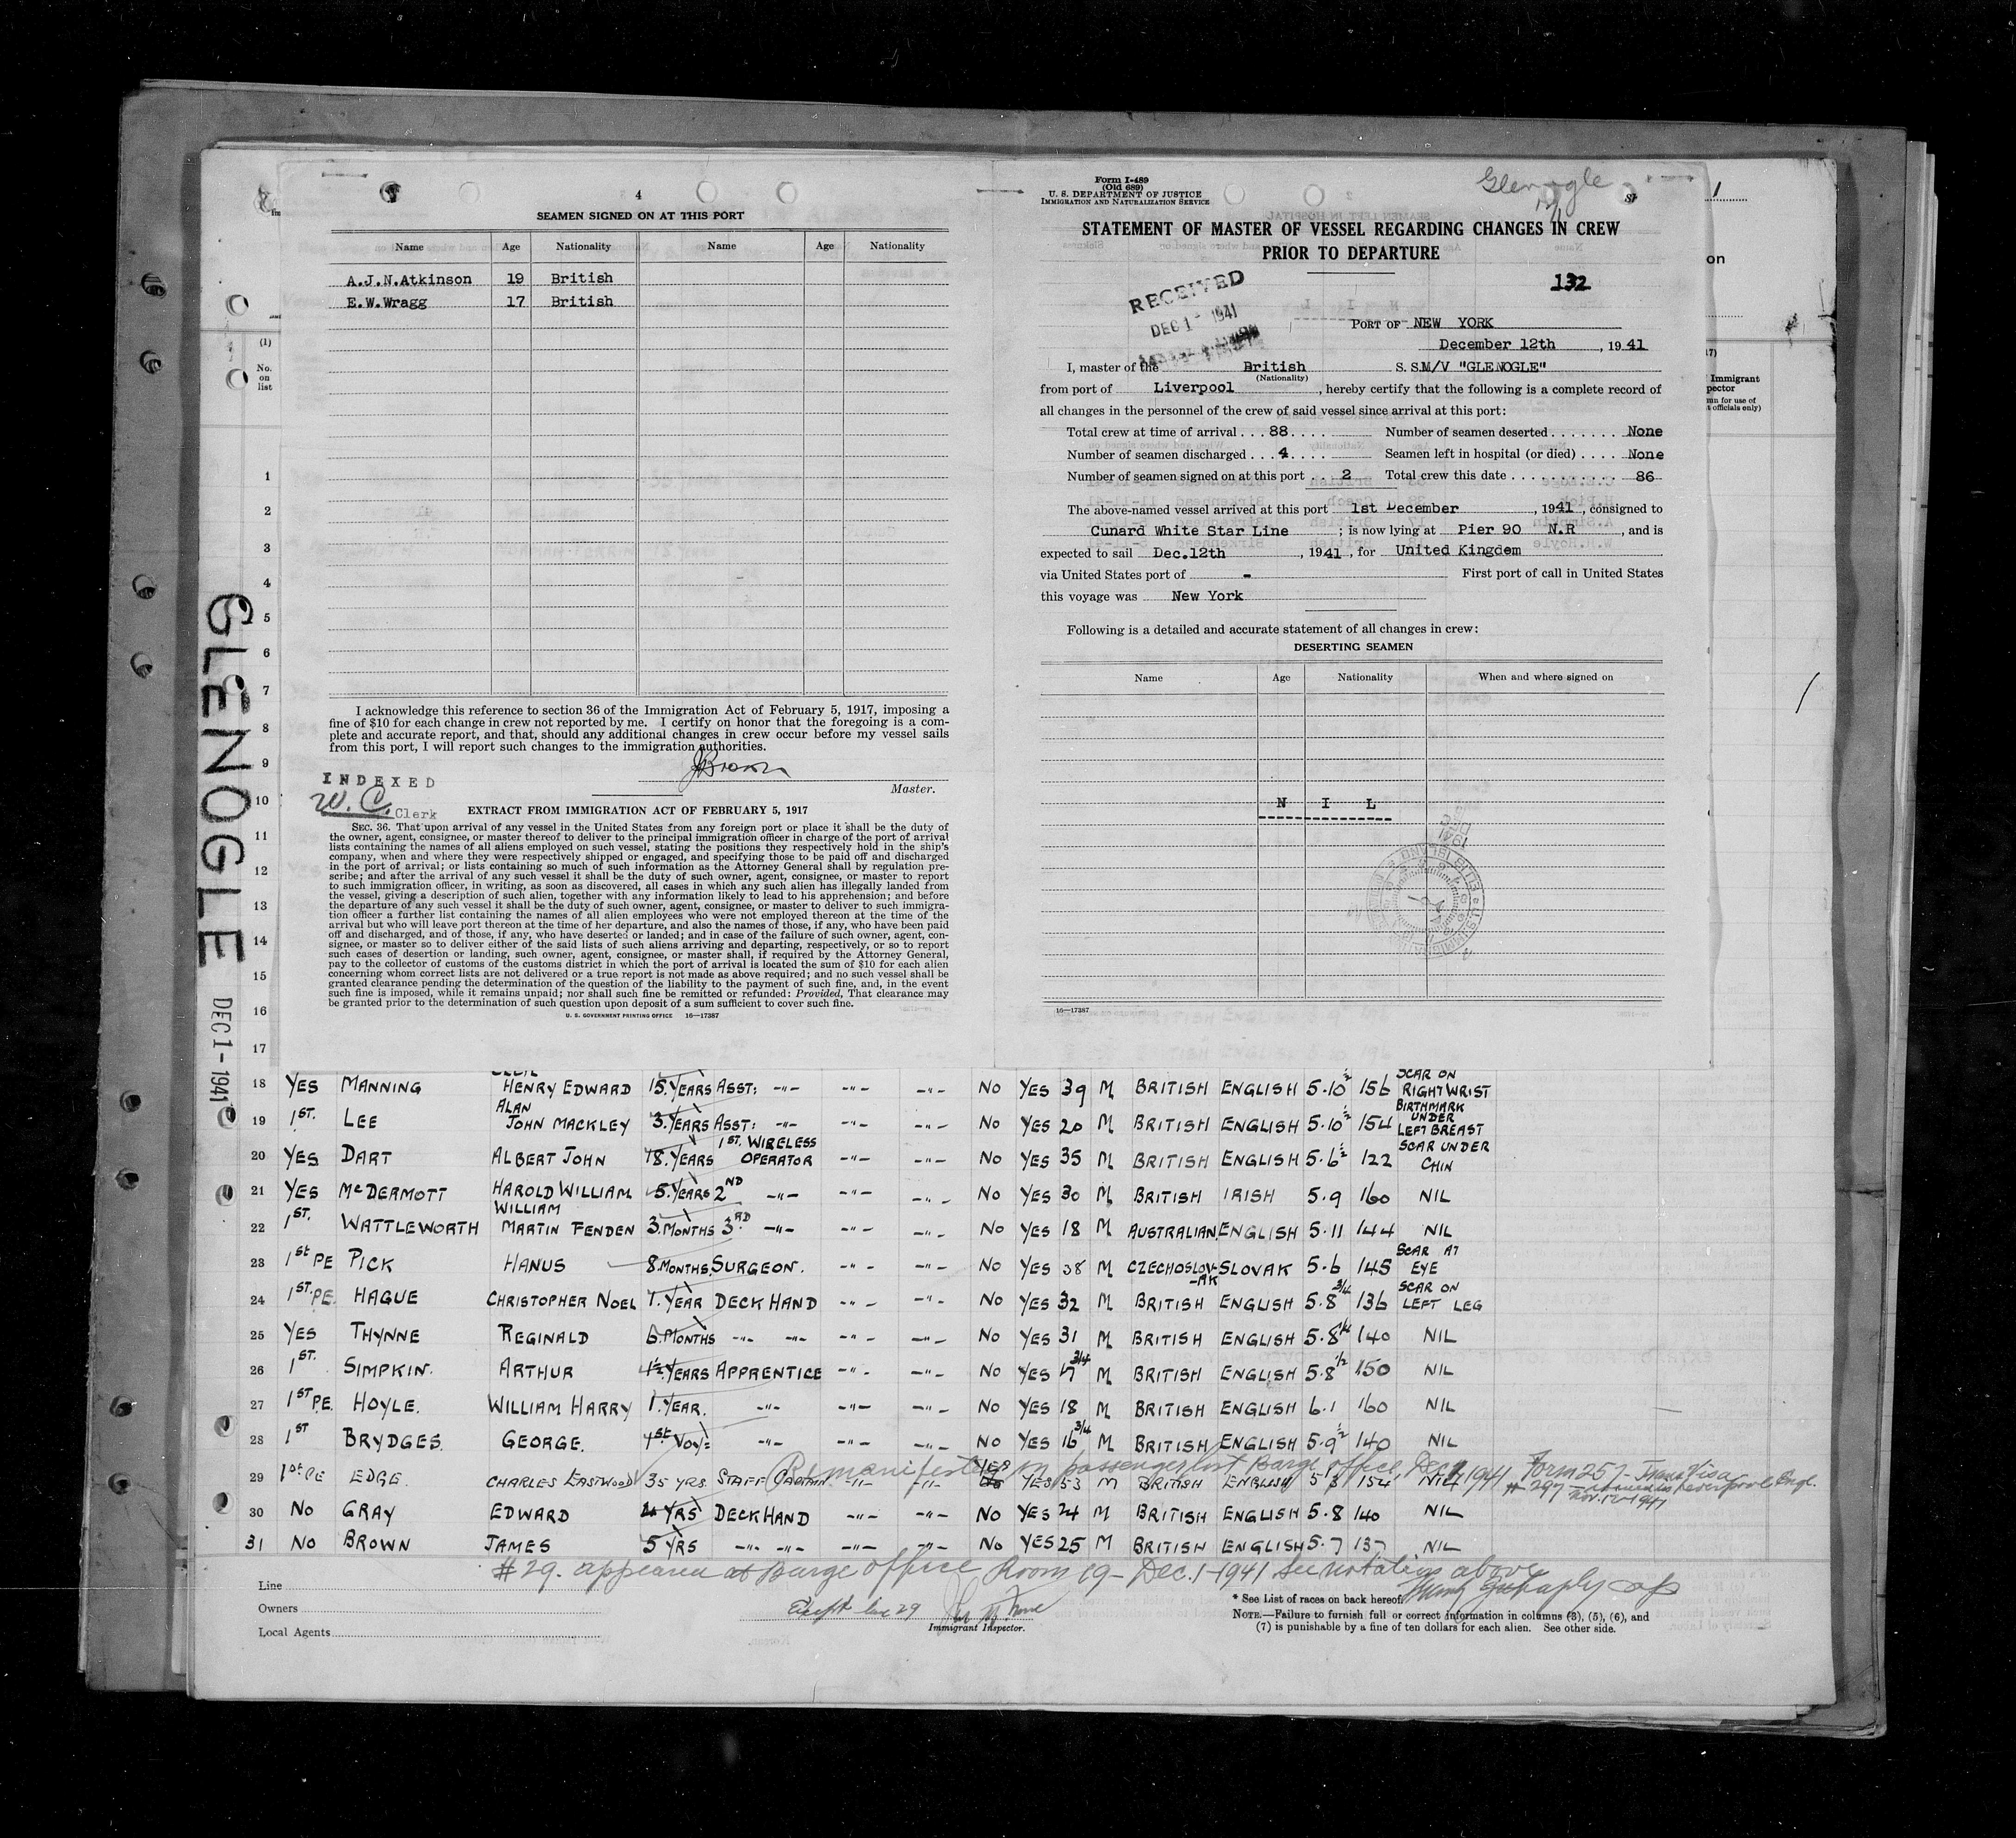 4
SEAMEN SIGNED ON AT THIS PORT
Name Age Nationality Name Age Nationality
A.J.N.Atkinson 19 British
E.W.Wragg 17 British
I acknowledge this reference to section 36 of the Immigration Act of February 5, 1917, imposing a
fine of $10 for each change in crew not reported by me. I certify on honor that the foregoing is a com-
plete and accurate report, and that, should any additional changes in crew occur before my vessel sails
from this port, I will report such changes to the immigration authorities.
JBrown
Master.
INDEXED
W. C. Clerk
EXTRACT FROM IMMIGRATION ACT OF FEBRUARY 5, 1917
SEC. 36. That upon arrival of any vessel in the United States from any foreign port or place it shall be the duty of
the owner, agent, consignee, or master thereof to deliver to the principal immigration officer in charge of the port of arrival
lists containing the names of all aliens employed on such vessel, stating the positions they respectively hold in the ship's
company, when and where they were respectively shipped or engaged, and specifying those to be paid off and discharged
in the port of arrival; or lists containing so much of such information as the Attorney General shall by regulation pre-
scribe; and after the arrival of any such vessel it shall be the duty of such owner, agent, consignee, or master to report
to such immigration officer, in writing, as soon as discovered, all cases in which any such alien has illegally landed from
the vessel, giving a description of such alien, together with any information likely to lead to his apprehension; and before
the departure of any such vessel it shall be the duty of such owner, agent, consignee, or master to deliver to such immigra-
tion officer a further list containing the names of all alien employees who were not employed thereon at the time of the
arrival but who will leave port thereon at the time of her departure, and also the names of those, if any, who have been paid
off and discharged, and of those, if any, who have deserted or landed; and in case of the failure of such owner, agent, con-
signee, or master so to deliver either of the said lists of such aliens arriving and departing, respectively, or so to report
such cases of desertion or landing, such owner, agent, consignee, or master shall, if required by the Attorney General,
pay to the collector of customs of the customs district in which the port of arrival is located the sum of $10 for each alien
concerning whom correct lists are not delivered or a true report is not made as above required; and no such vessel shall be
granted clearance pending the determination of the question of the liability to the payment of such fine, and, in the event
such fine is imposed, while it remains unpaid; nor shall such fine be remitted or refunded: Provided, That clearance may
be granted prior to the determination of such question upon deposit of a sum sufficient to cover such fine.
U. S. GOVERNMENT PRINTING OFFICE 16—17387
Form I-489
(Old 689)
U. S. DEPARTMENT OF JUSTICE
IMMIGRATION AND NATURALIZATION SERVICE
Glenogle
STATEMENT OF MASTER OF VESSEL REGARDING CHANGES IN CREW
PRIOR TO DEPARTURE
132
RECEIVED
DEC 1 - 1941
PORT OF NEW YORK
December 12th, 1941
I, master of the British S. S. M/V "GLENOGLE"
(Nationality)
from port of Liverpool, hereby certify that the following is a complete record of
all changes in the personnel of the crew of said vessel since arrival at this port:
Total crew at time of arrival . . . 88 . . . . Number of seamen deserted . . . . . . . None
Number of seamen discharged . . . 4 . . . . Seamen left in hospital (or died) . . . . None
Number of seamen signed on at this port . . 2 Total crew this date . . . . . . . . . . 86
The above-named vessel arrived at this port 1st December, 1941, consigned to
Cunard White Star Line ; is now lying at Pier 90 N.R, and is
expected to sail Dec.12th, 1941, for United Kingdom
via United States port of - First port of call in United States
this voyage was New York
Following is a detailed and accurate statement of all changes in crew:
DESERTING SEAMEN
Name Age Nationality When and where signed on
N I L
16—17387
(1)
No.
on
list
on
Immigrant
GLENOGLE
DEC 1 - 1941
1
2
3
4
5
6
7
8
9
10
11
12
13
14
15
16
17
18 YES MANNING CECIL HENRY EDWARD 15.YEARS ASST: -"- -"- -"- NO YES 39 M BRITISH ENGLISH 5·10½ 156 SCAR ON RIGHT WRIST
19 1ST. LEE ALAN JOHN MACKLEY 3.YEARS ASST: -"- -"- -"- NO YES 20 M BRITISH ENGLISH 5·10½ 154 BIRTHMARK UNDER LEFT BREAST
20 YES DART ALBERT JOHN 18.YEARS 1ST. WIRELESS OPERATOR -"- -"- NO YES 35 M BRITISH ENGLISH 5·6½ 122 SCAR UNDER CHIN
21 YES McDERMOTT HAROLD WILLIAM 5.YEARS 2ND -"- -"- -"- NO YES 30 M BRITISH IRISH 5·9 160 NIL
22 1ST. WATTLEWORTH WILLIAM MARTIN FENDEN 3.MONTHS 3RD -"- -"- -"- NO YES 18 M AUSTRALIAN. ENGLISH 5·11 144 NIL
23 1st PE PICK HANUS 8.MONTHS. SURGEON. -"- -"- NO YES 38 M CZECHOSLOV-AK SLOVAK 5·6 145 SCAR AT EYE
24 1ST.PE. HAGUE CHRISTOPHER NOEL 1.YEAR DECK HAND -"- -"- NO YES 32 M BRITISH ENGLISH 5·8¾ 136 SCAR ON LEFT LEG
25 YES THYNNE REGINALD 6.MONTHS -"- -"- -"- -"- NO YES 31 M BRITISH ENGLISH 5·8¼ 140 NIL
26 1ST. SIMPKIN. ARTHUR 1½.YEARS APPRENTICE -"- -"- NO YES 17¾ M BRITISH ENGLISH 5·8½ 150 NIL
27 1ST P.E. HOYLE. WILLIAM HARRY 1.YEAR. -"- -"- -"- NO YES 18 M BRITISH ENGLISH 6·1 160 NIL
28 1ST BRYDGES. GEORGE. 1st. VOY= -"- -"- -"- NO YES 16¾ M BRITISH ENGLISH 5·9½ 140 NIL
Remanifested on passenger list Barge office Dec 1/1941 Form 257 - Trans Visa
29 1st PE EDGE. CHARLES EASTWOOD 35 YRS. STAFF CAPTAIN -"- -"- YES YES 53 M BRITISH ENGLISH 5 8 154 NIL # 297 - Liverpool Engl.
30 NO GRAY EDWARD 4 YRS DECK HAND -"- -"- NO YES 24 M BRITISH ENGLISH 5·8 140 NIL
31 NO BROWN JAMES 5 YRS -"- -"- -"- -"- NO YES 25 M BRITISH ENGLISH 5·7 137 NIL
#29. appeared at Barge office Room 19 - Dec. 1-1941 See notations above
Line
Owners
Local Agents
Except line 29
Immigrant Inspector.
* See List of races on back hereof.
NOTE.—Failure to furnish full or correct information in columns (3), (5), (6), and
(7) is punishable by a fine of ten dollars for each alien. See other side.